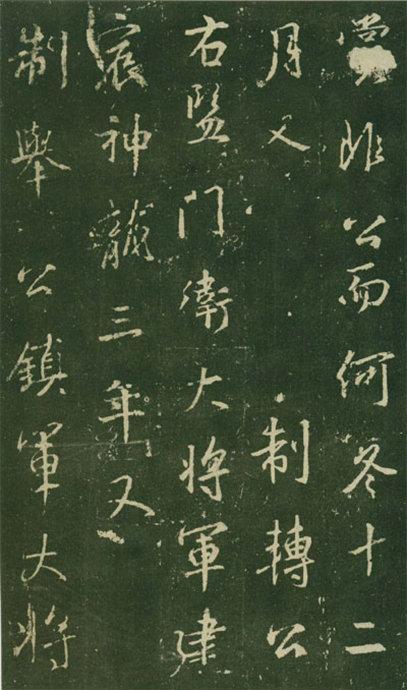 非公而何冬十二
月又制轉公
右監門衛大將軍建
神龍三年又
制舉公鎮軍大將